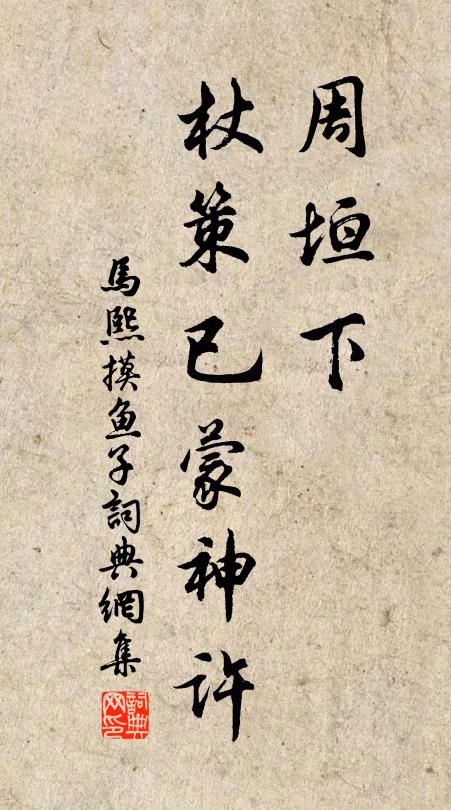 周垣下
杖策已蒙神许
馬熙摸鱼子詞典網集
詞典网印